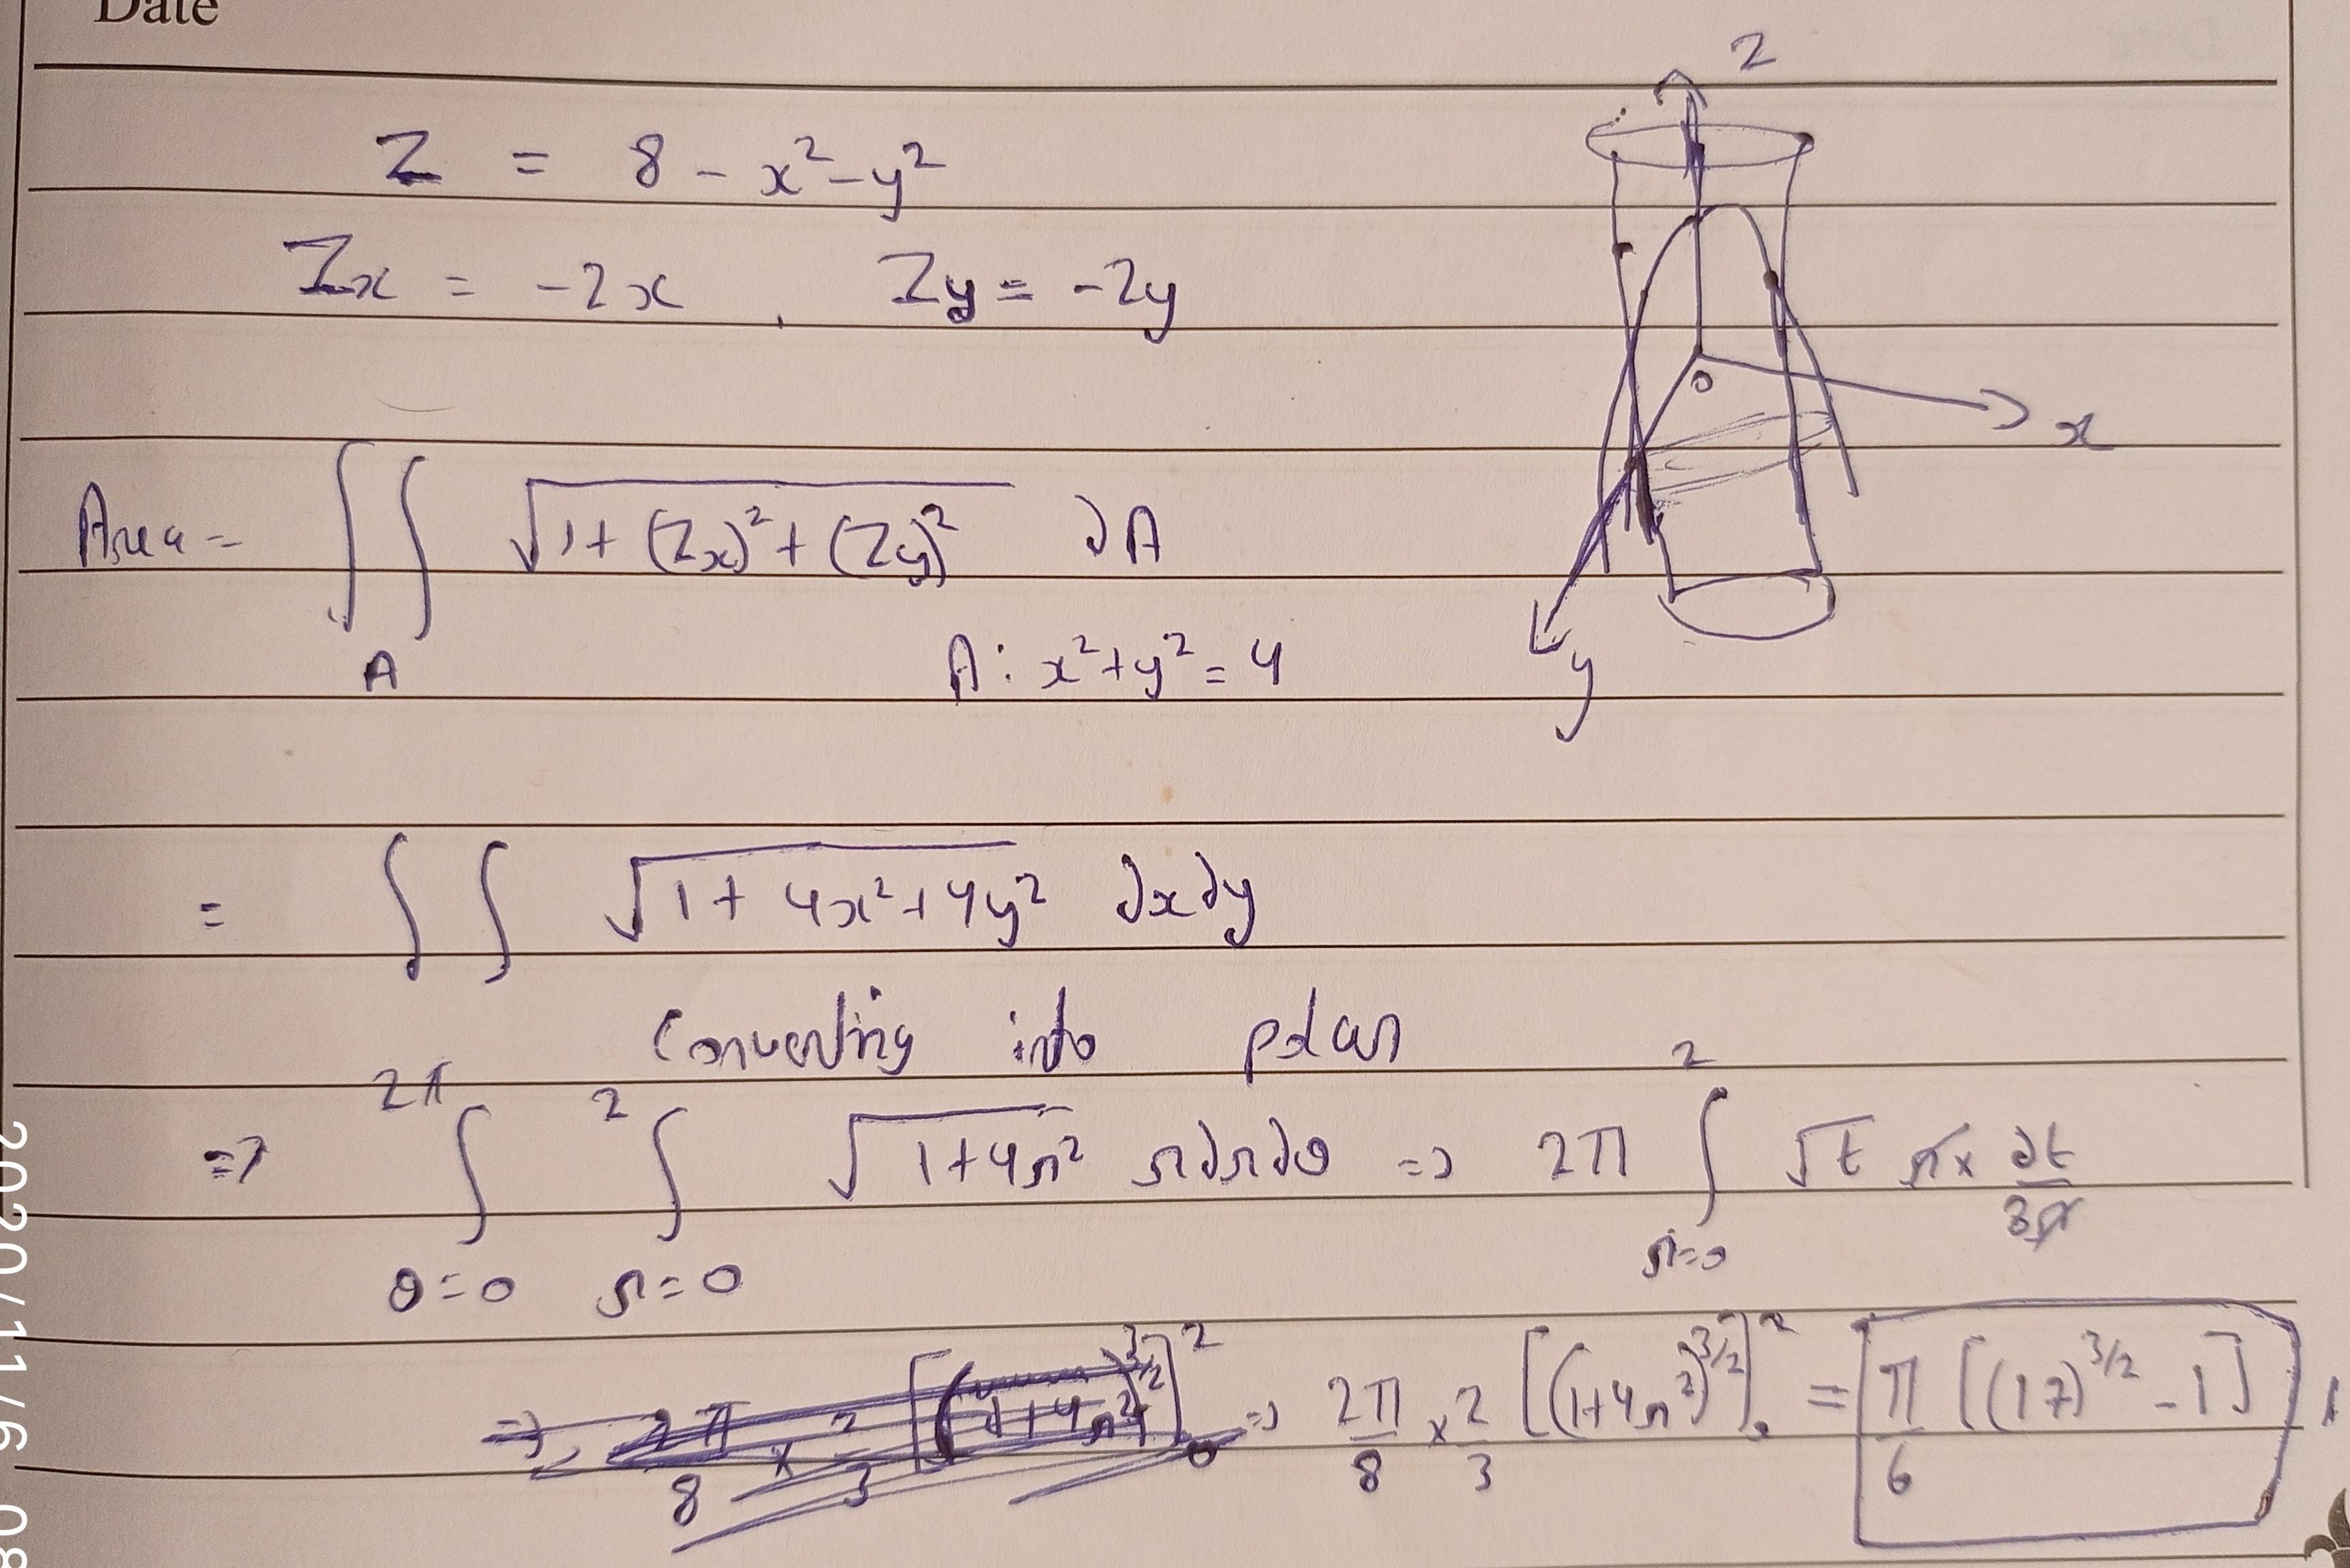 Date
Z
Z = 8 - x² - y²
Zx = -2x , Zy = -2y
o
x
Area = ∫∫ √(1 + (Zx)² + (Zy)²) ∂A
A
A : x² + y² = 4
y
= ∫∫ √(1 + 4x² + 4y²) ∂x∂y
Converting into polar
=> ∫_{θ=0}^{2π} ∫_{r=0}^{2} √(1+4r²) r∂r∂θ => 2π ∫_{r=0}^{2} √t r × ∂t/8r
=> 2π/8 × 2/3 [(1+4r²)^{3/2}]_0^2 => 2π/8 × 2/3 [(1+4r²)^{3/2}]_0^2 = π/6 [(17)^{3/2} - 1]
2020/11/6 08